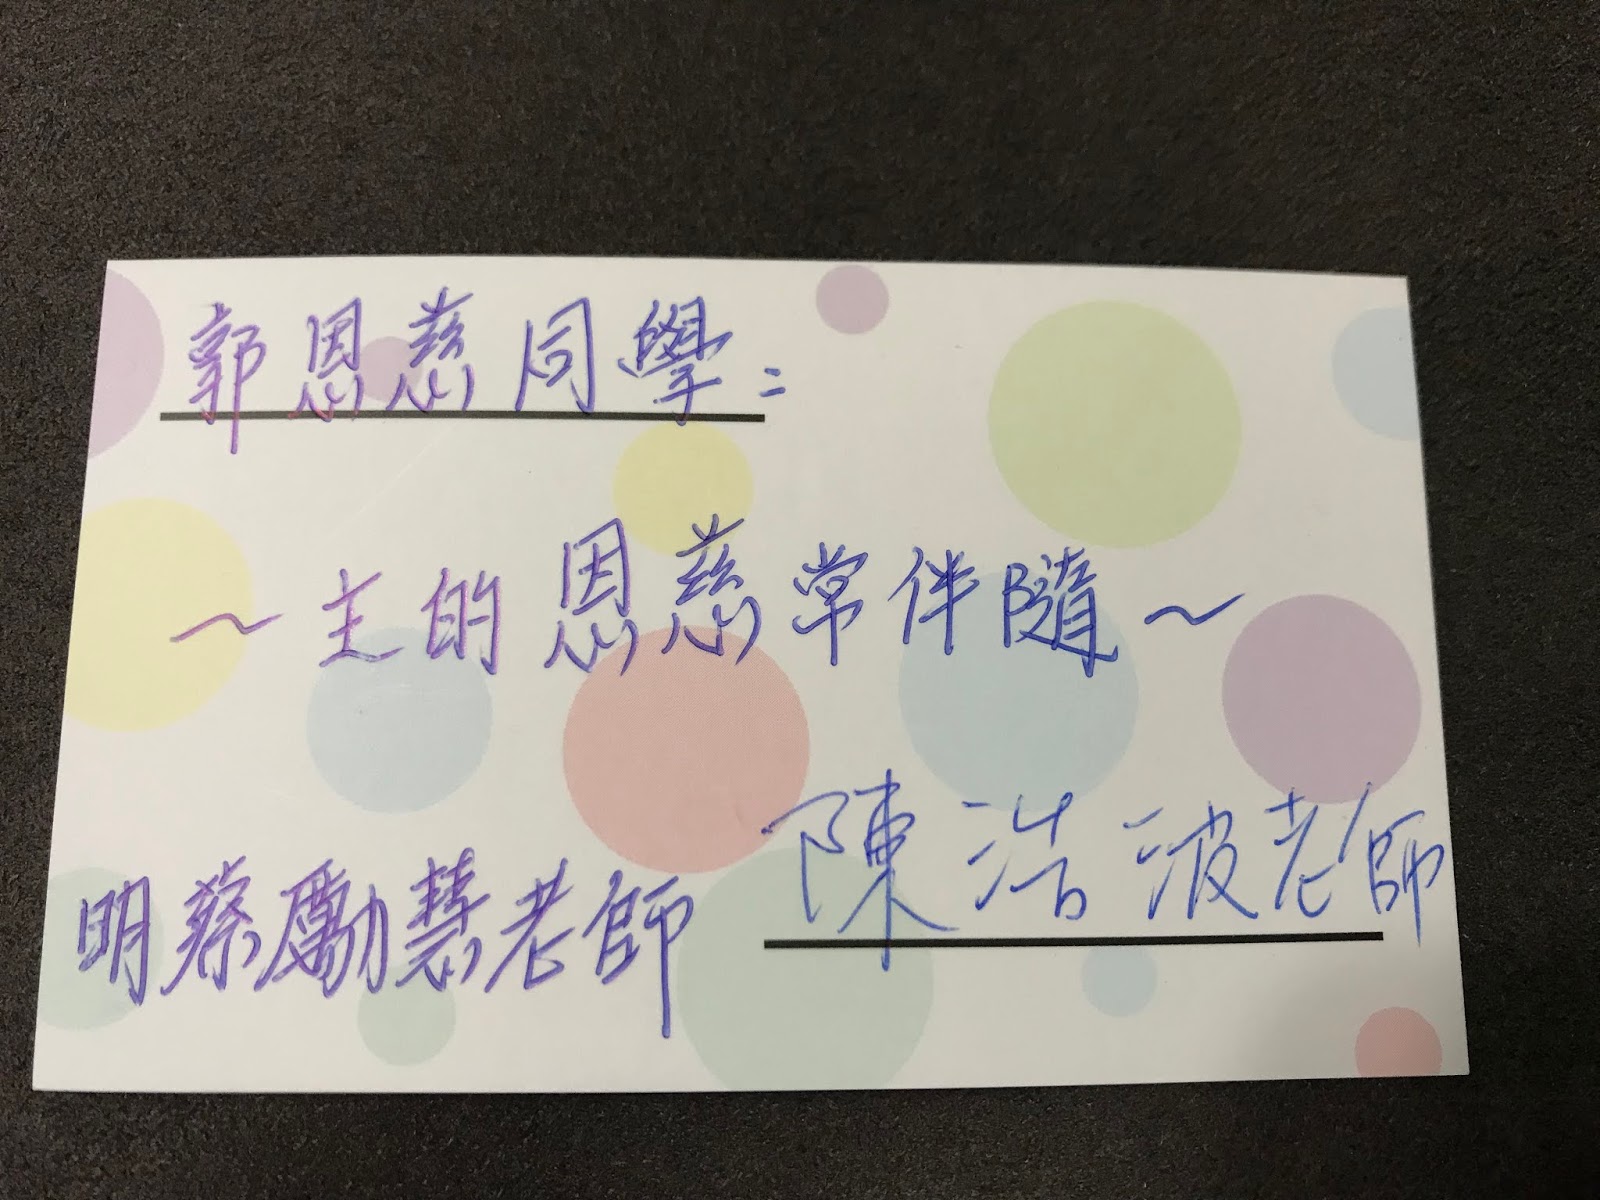 郭恩慈同學：
～主的恩慈常伴隨～
陳浩波老師
明蔡勵慧老師